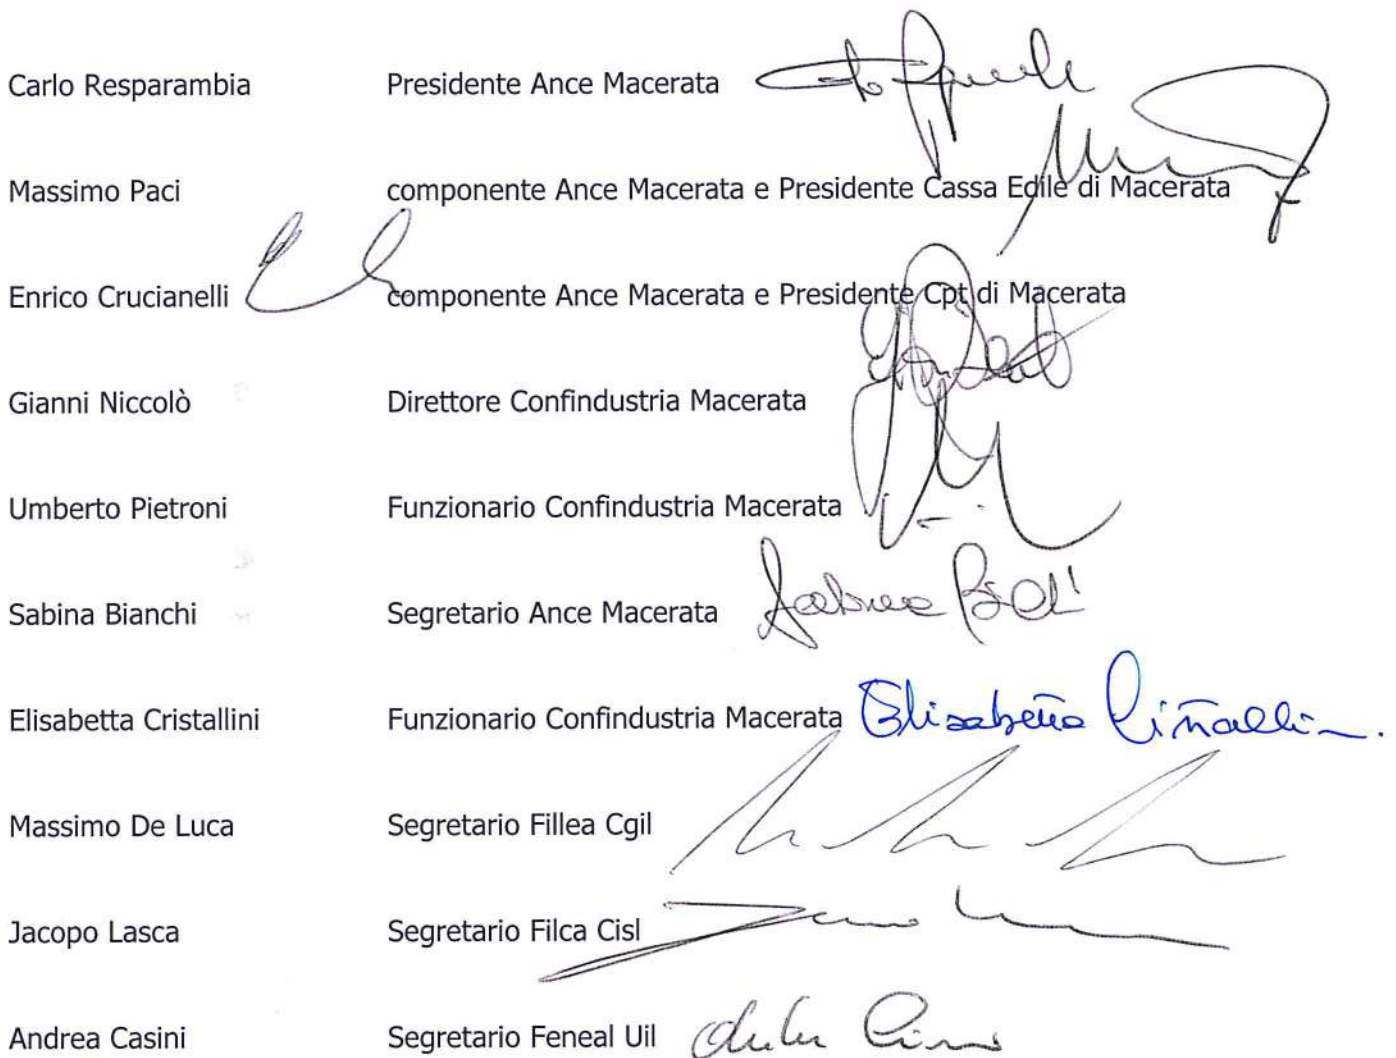 Carlo Resparambia Presidente Ance Macerata
Massimo Paci componente Ance Macerata e Presidente Cassa Edile di Macerata
Enrico Crucianelli componente Ance Macerata e Presidente Cpt di Macerata
Gianni Niccolò Direttore Confindustria Macerata
Umberto Pietroni Funzionario Confindustria Macerata
Sabina Bianchi Segretario Ance Macerata
Elisabetta Cristallini Funzionario Confindustria Macerata Elisabetta
Massimo De Luca Segretario Fillea Cgil
Jacopo Lasca Segretario Filca Cisl
Andrea Casini Segretario Feneal Uil